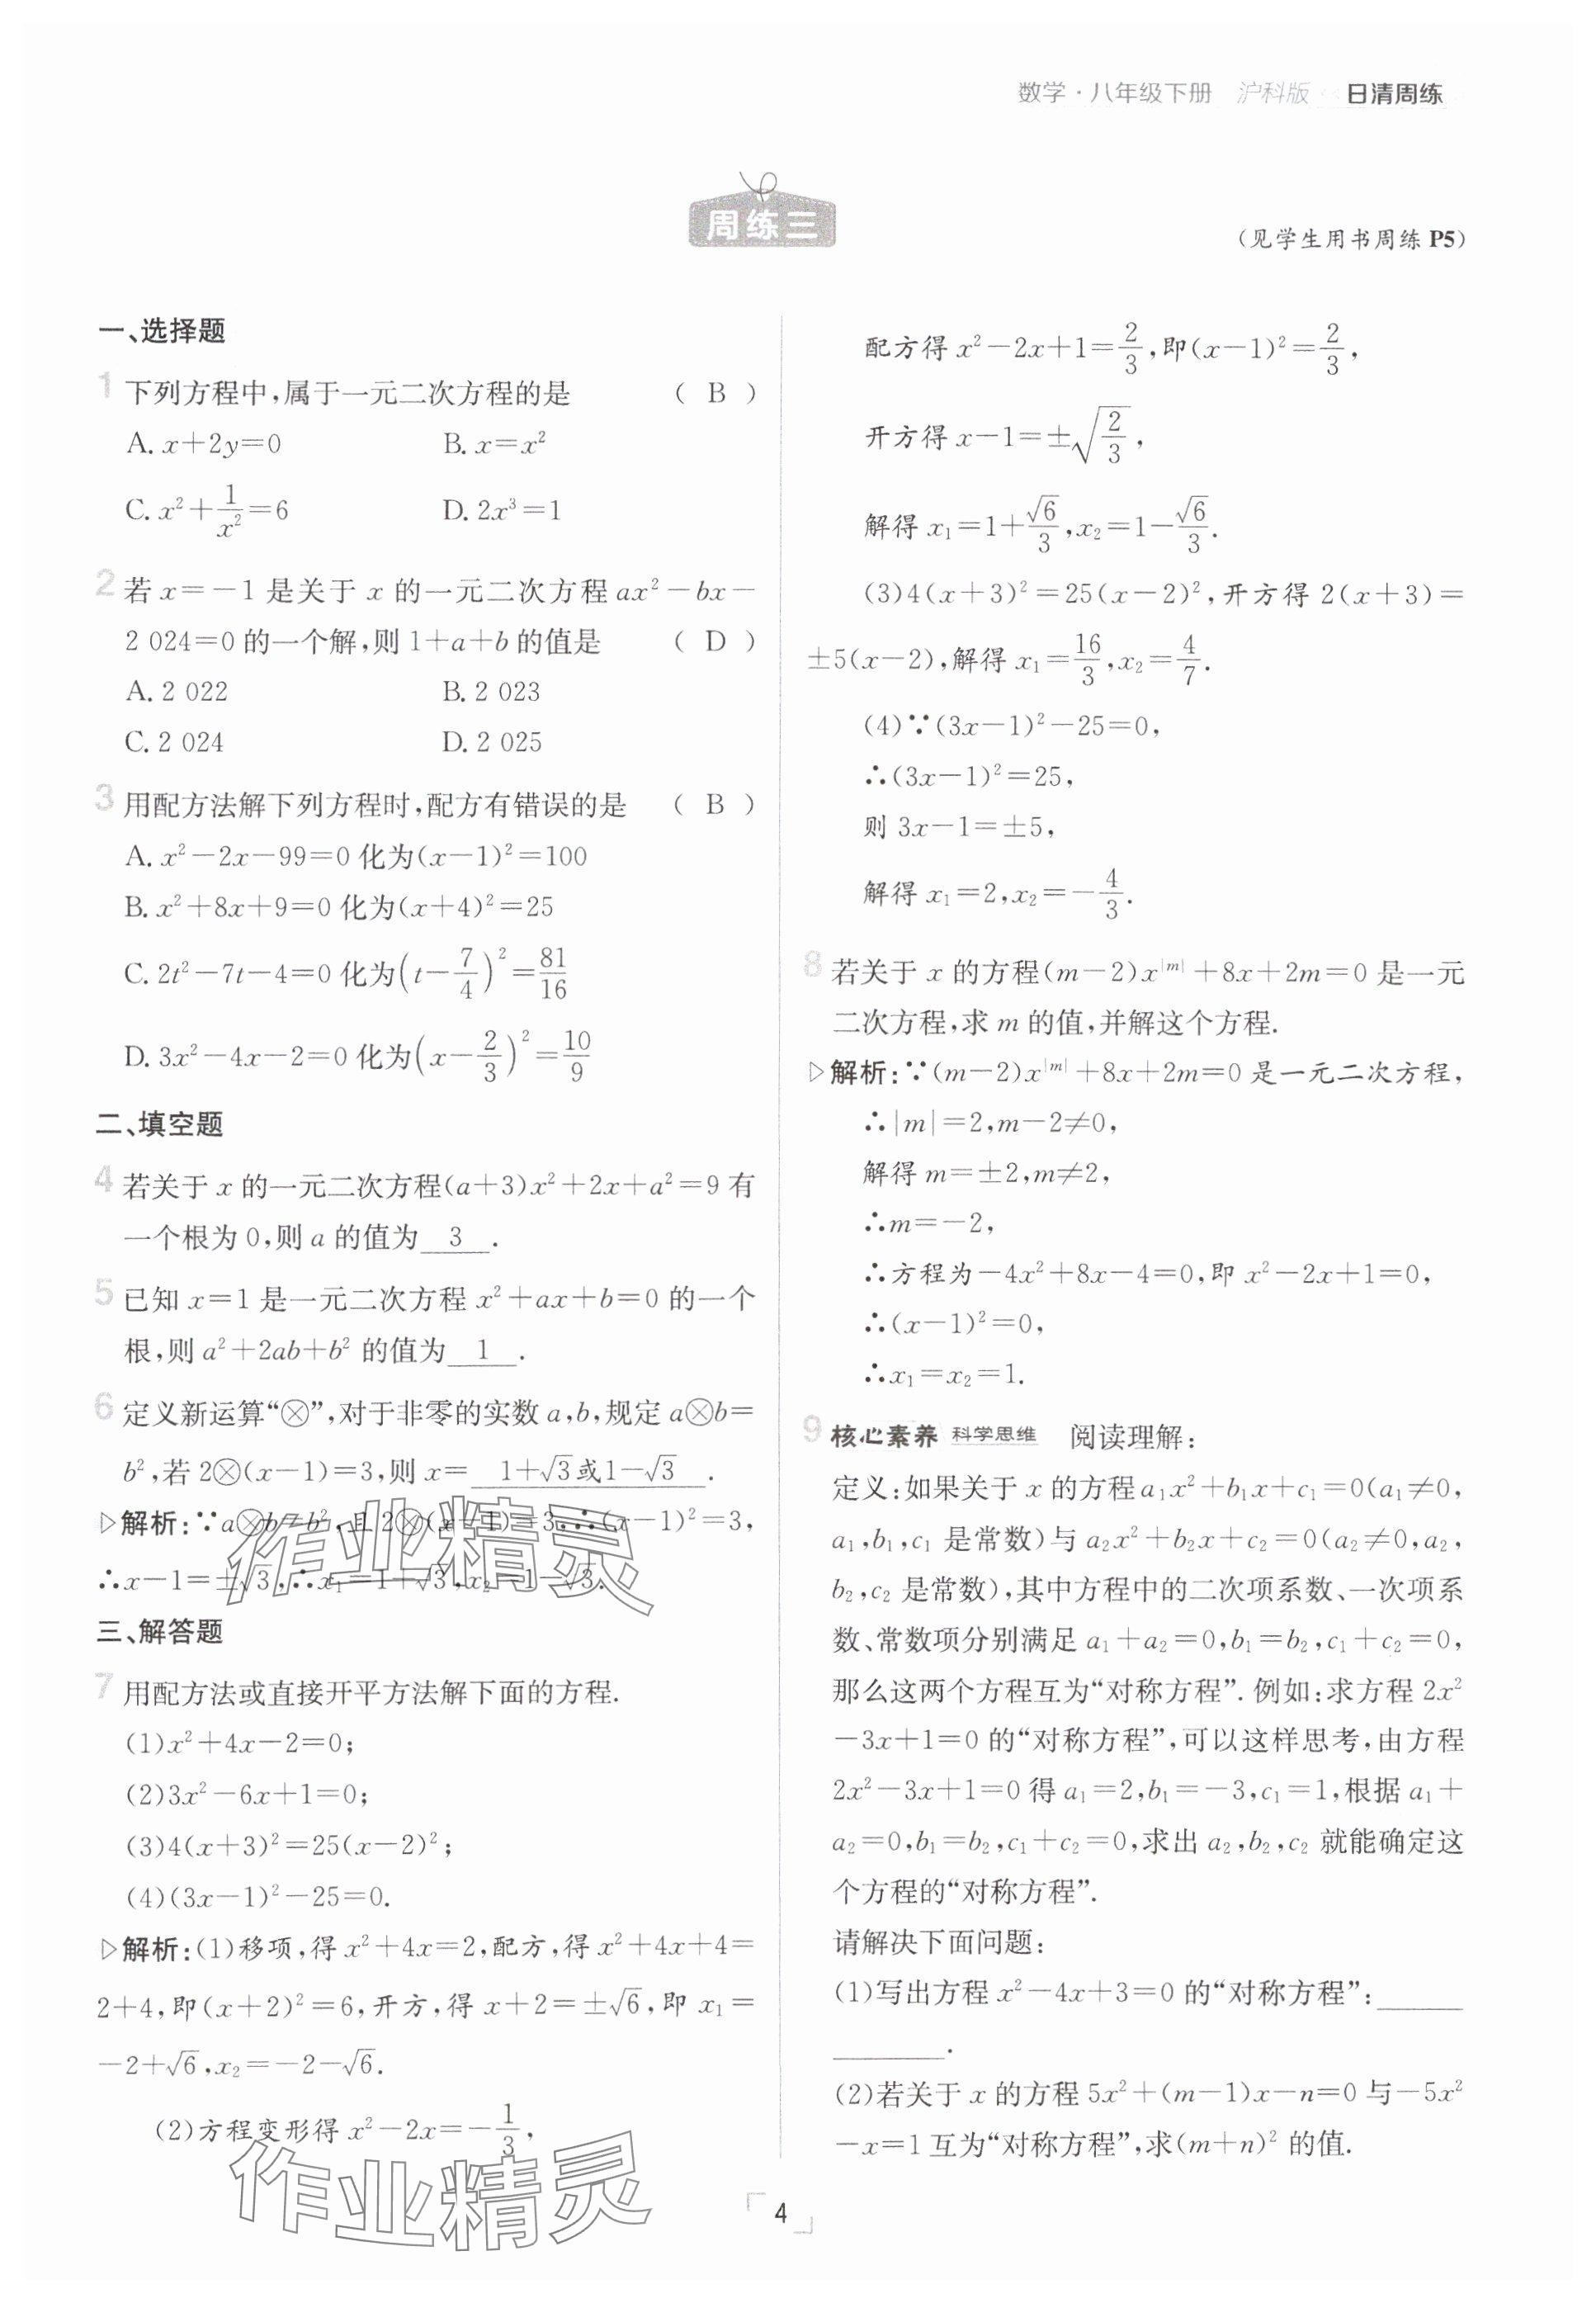 数学·八年级下册 沪科版 日清周练
周练三
(见学生用书周练P5)
一、选择题
1 下列方程中,属于一元二次方程的是 ( B )
A. x+2y=0 B. x=x²
C. x²+1/x²=6 D. 2x³=1
2 若 x=-1 是关于 x 的一元二次方程 ax²-bx-
2 024=0 的一个解,则 1+a+b 的值是 ( D )
A. 2 022 B. 2 023
C. 2 024 D. 2 025
3 用配方法解下列方程时,配方有错误的是 ( B )
A. x²-2x-99=0 化为(x-1)²=100
B. x²+8x+9=0 化为(x+4)²=25
C. 2t²-7t-4=0 化为(t-7/4)²=81/16
D. 3x²-4x-2=0 化为(x-2/3)²=10/9
二、填空题
4 若关于 x 的一元二次方程(a+3)x²+2x+a²=9 有
一个根为 0,则 a 的值为 3 .
5 已知 x=1 是一元二次方程 x²+ax+b=0 的一个
根,则 a²+2ab+b² 的值为 1 .
6 定义新运算“⊗”,对于非零的实数 a,b,规定 a⊗b=
b²,若 2⊗(x-1)=3,则 x= 1+√3或1-√3 .
▷解析:∵a⊗b=b²,且 2⊗(x-1)=3,∴(x-1)²=3,
∴x-1=±√3,∴x₁=1+√3,x₂=1-√3.
三、解答题
7 用配方法或直接开平方法解下面的方程.
(1)x²+4x-2=0;
(2)3x²-6x+1=0;
(3)4(x+3)²=25(x-2)²;
(4)(3x-1)²-25=0.
▷解析:(1)移项,得 x²+4x=2,配方,得 x²+4x+4=
2+4,即(x+2)²=6,开方,得 x+2=±√6,即 x₁=
-2+√6,x₂=-2-√6.
(2)方程变形得 x²-2x=-1/3,
配方得 x²-2x+1=2/3,即(x-1)²=2/3,
开方得 x-1=±√(2/3),
解得 x₁=1+√6/3,x₂=1-√6/3.
(3)4(x+3)²=25(x-2)²,开方得 2(x+3)=
±5(x-2),解得 x₁=16/3,x₂=4/7.
(4)∵(3x-1)²-25=0,
∴(3x-1)²=25,
则 3x-1=±5,
解得 x₁=2,x₂=-4/3.
8 若关于 x 的方程(m-2)x^|m|+8x+2m=0 是一元
二次方程,求 m 的值,并解这个方程.
▷解析:∵(m-2)x^|m|+8x+2m=0 是一元二次方程,
∴|m|=2,m-2≠0,
解得 m=±2,m≠2,
∴m=-2,
∴方程为-4x²+8x-4=0,即 x²-2x+1=0,
∴(x-1)²=0,
∴x₁=x₂=1.
9 核心素养 科学思维 阅读理解:
定义:如果关于 x 的方程 a₁x²+b₁x+c₁=0(a₁≠0,
a₁,b₁,c₁ 是常数)与 a₂x²+b₂x+c₂=0(a₂≠0,a₂,
b₂,c₂ 是常数),其中方程中的二次项系数、一次项系
数、常数项分别满足 a₁+a₂=0,b₁=b₂,c₁+c₂=0,
那么这两个方程互为“对称方程”. 例如:求方程 2x²
-3x+1=0 的“对称方程”,可以这样思考,由方程
2x²-3x+1=0 得 a₁=2,b₁=-3,c₁=1,根据 a₁+
a₂=0,b₁=b₂,c₁+c₂=0,求出 a₂,b₂,c₂ 就能确定这
个方程的“对称方程”.
请解决下面问题:
(1)写出方程 x²-4x+3=0 的“对称方程”:______
________.
(2)若关于 x 的方程 5x²+(m-1)x-n=0 与-5x²
-x=1 互为“对称方程”,求(m+n)² 的值.
作业精灵
作业精灵
4